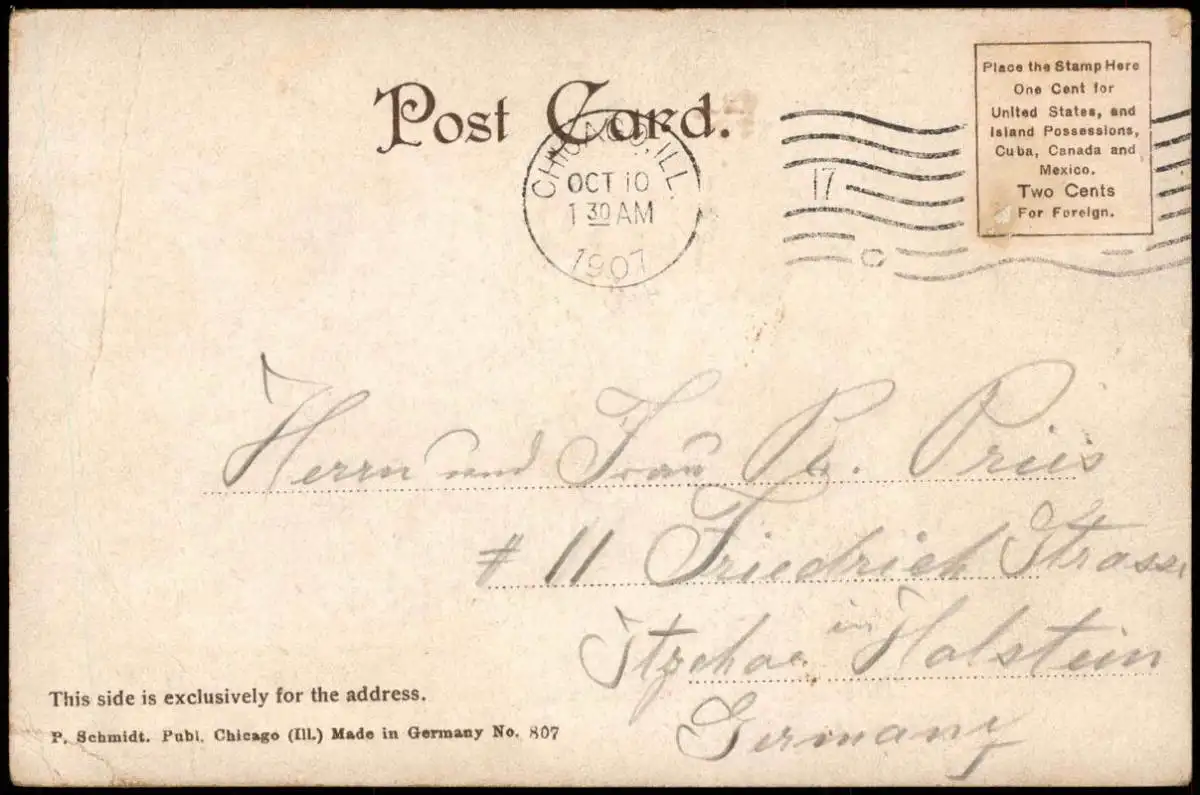 Post Card.
CHICAGO, ILL.
OCT 10
1 30 AM
1907
17
C
Place the Stamp Here
One Cent for
United States, and
Island Possessions,
Cuba, Canada and
Mexico.
Two Cents
For Foreign.
Herrn und Frau Pr. Priis
# 11 Friedrich Strasse
Itzehoe in Holstein
Germany
This side is exclusively for the address.
P. Schmidt. Publ. Chicago (Ill.) Made in Germany No. 807